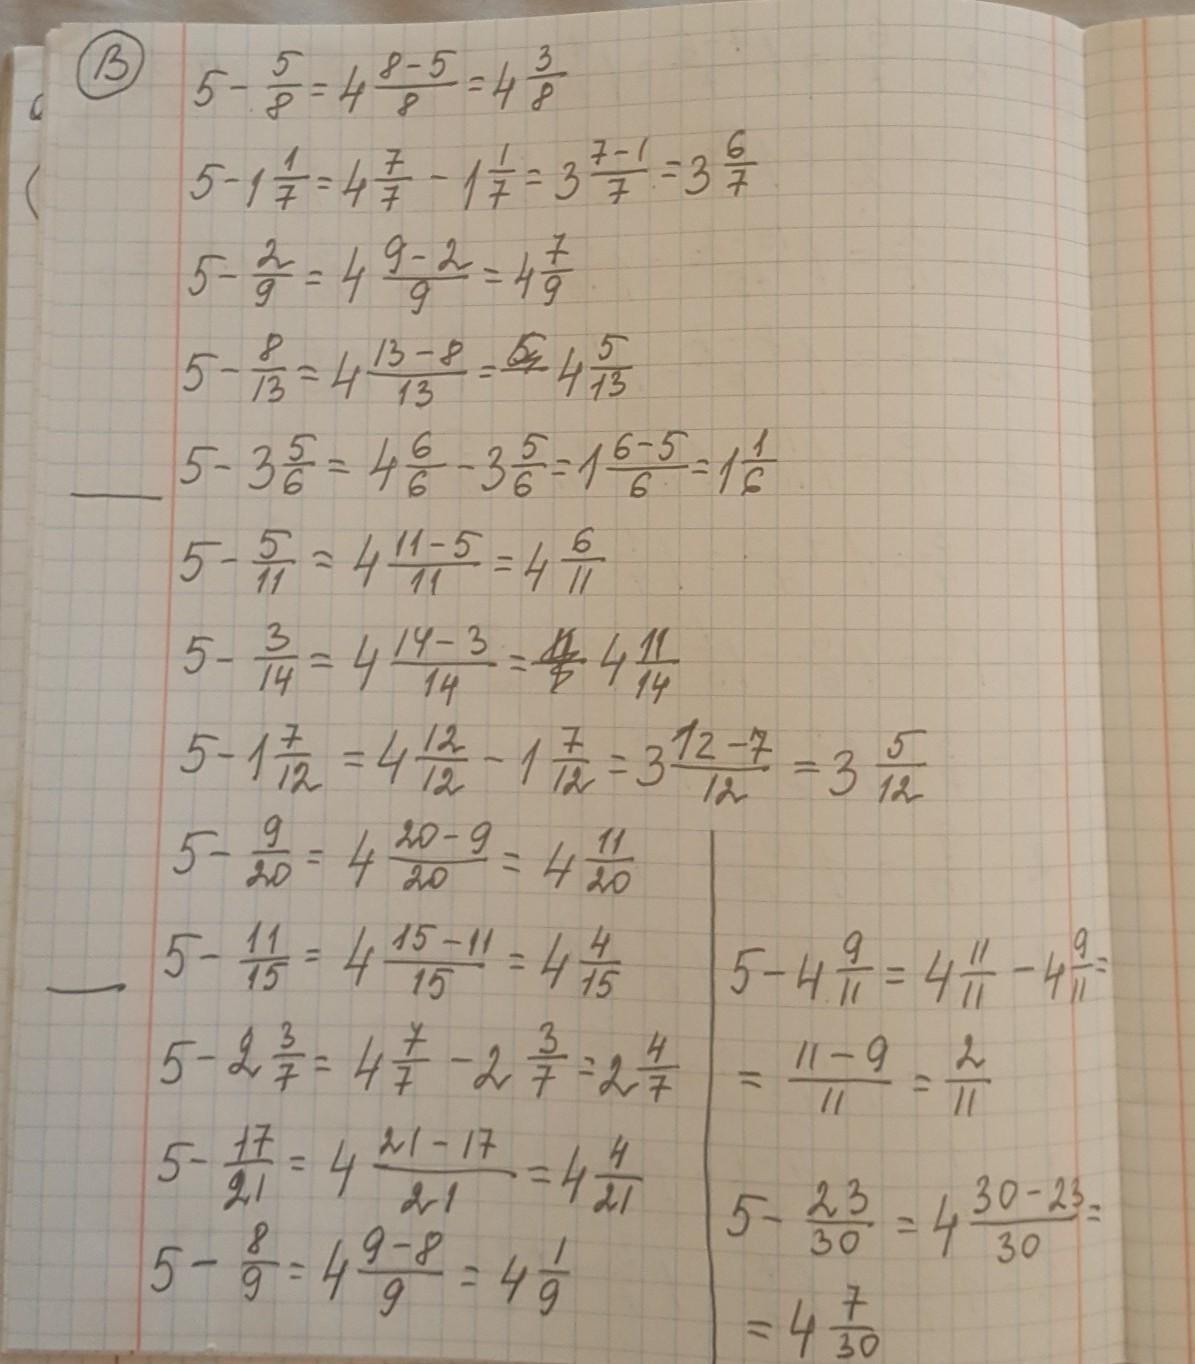 В
5 - 5/8 = 4 (8-5)/8 = 4 3/8
5 - 1 1/7 = 4 7/7 - 1 1/7 = 3 (7-1)/7 = 3 6/7
5 - 2/9 = 4 (9-2)/9 = 4 7/9
5 - 8/13 = 4 (13-8)/13 = 4 5/13
5 - 3 5/6 = 4 6/6 - 3 5/6 = 1 (6-5)/6 = 1 1/6
5 - 5/11 = 4 (11-5)/11 = 4 6/11
5 - 3/14 = 4 (14-3)/14 = 4 11/14
5 - 1 7/12 = 4 12/12 - 1 7/12 = 3 (12-7)/12 = 3 5/12
5 - 9/20 = 4 (20-9)/20 = 4 11/20
5 - 11/15 = 4 (15-11)/15 = 4 4/15
5 - 2 3/7 = 4 7/7 - 2 3/7 = 2 4/7
5 - 17/21 = 4 (21-17)/21 = 4 4/21
5 - 8/9 = 4 (9-8)/9 = 4 1/9
5 - 4 9/11 = 4 11/11 - 4 9/11 =
= (11-9)/11 = 2/11
5 - 23/30 = 4 (30-23)/30 =
= 4 7/30